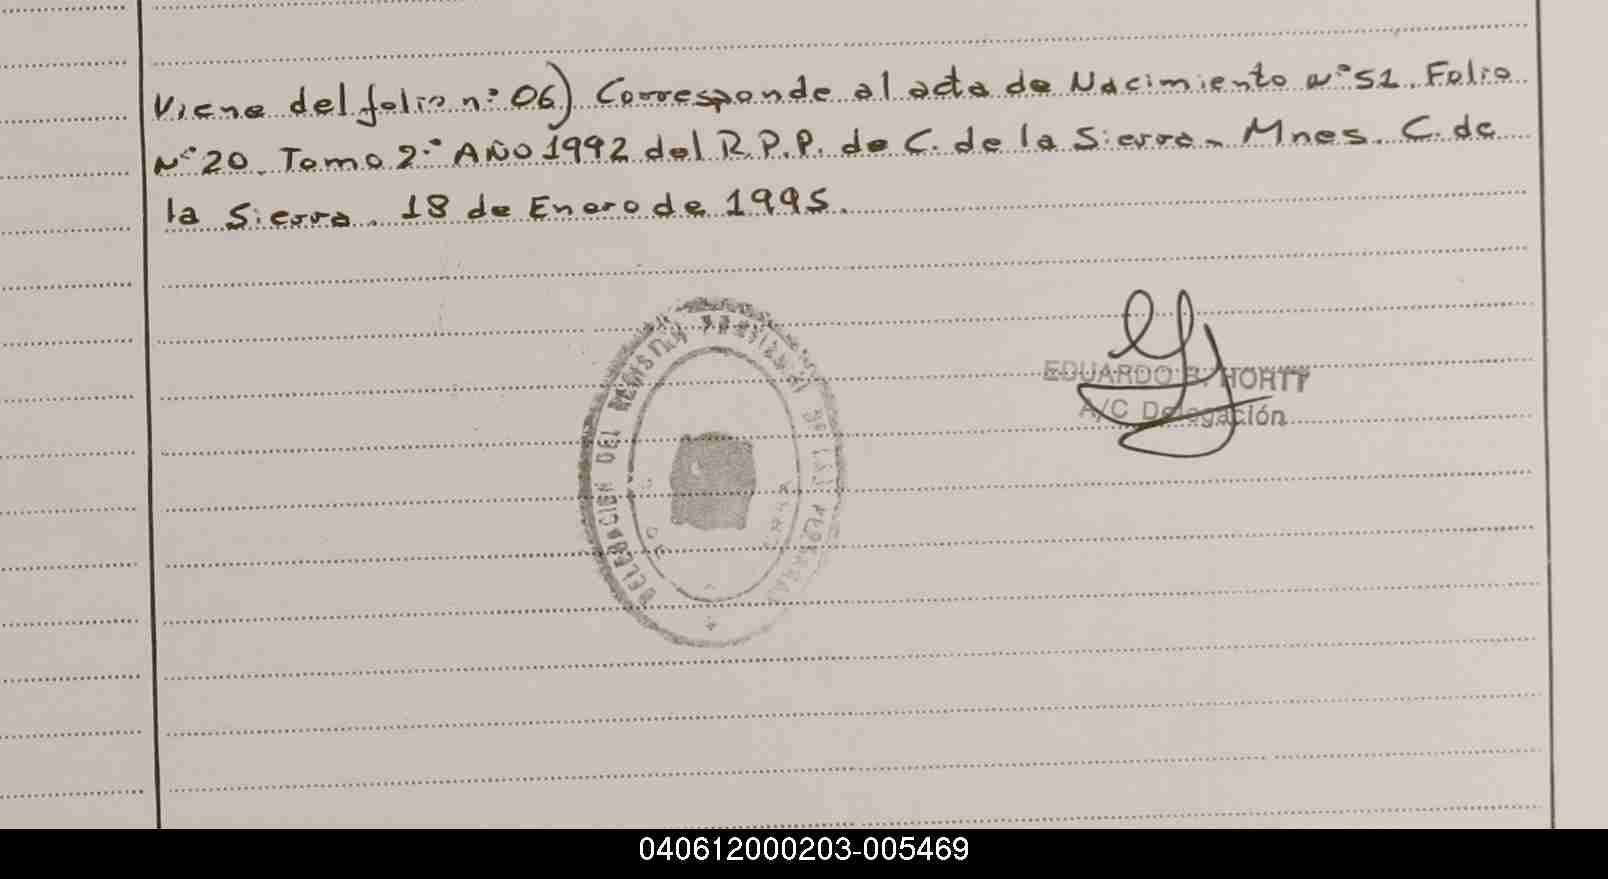 Viene del folio n:° 06) Corresponde al acta de Nacimiento N°52. Folio
N° 20. Tomo 2.° AÑO 1992 del R.P.P. de C. de la Sierra. Mnes. C. de
la Sierra. 18 de Enero de 1995.
DELEGACION DEL REGISTRO PROVINCIAL DE LAS PERSONAS
EDUARDO HORTT
A/C Delegación
040612000203-005469